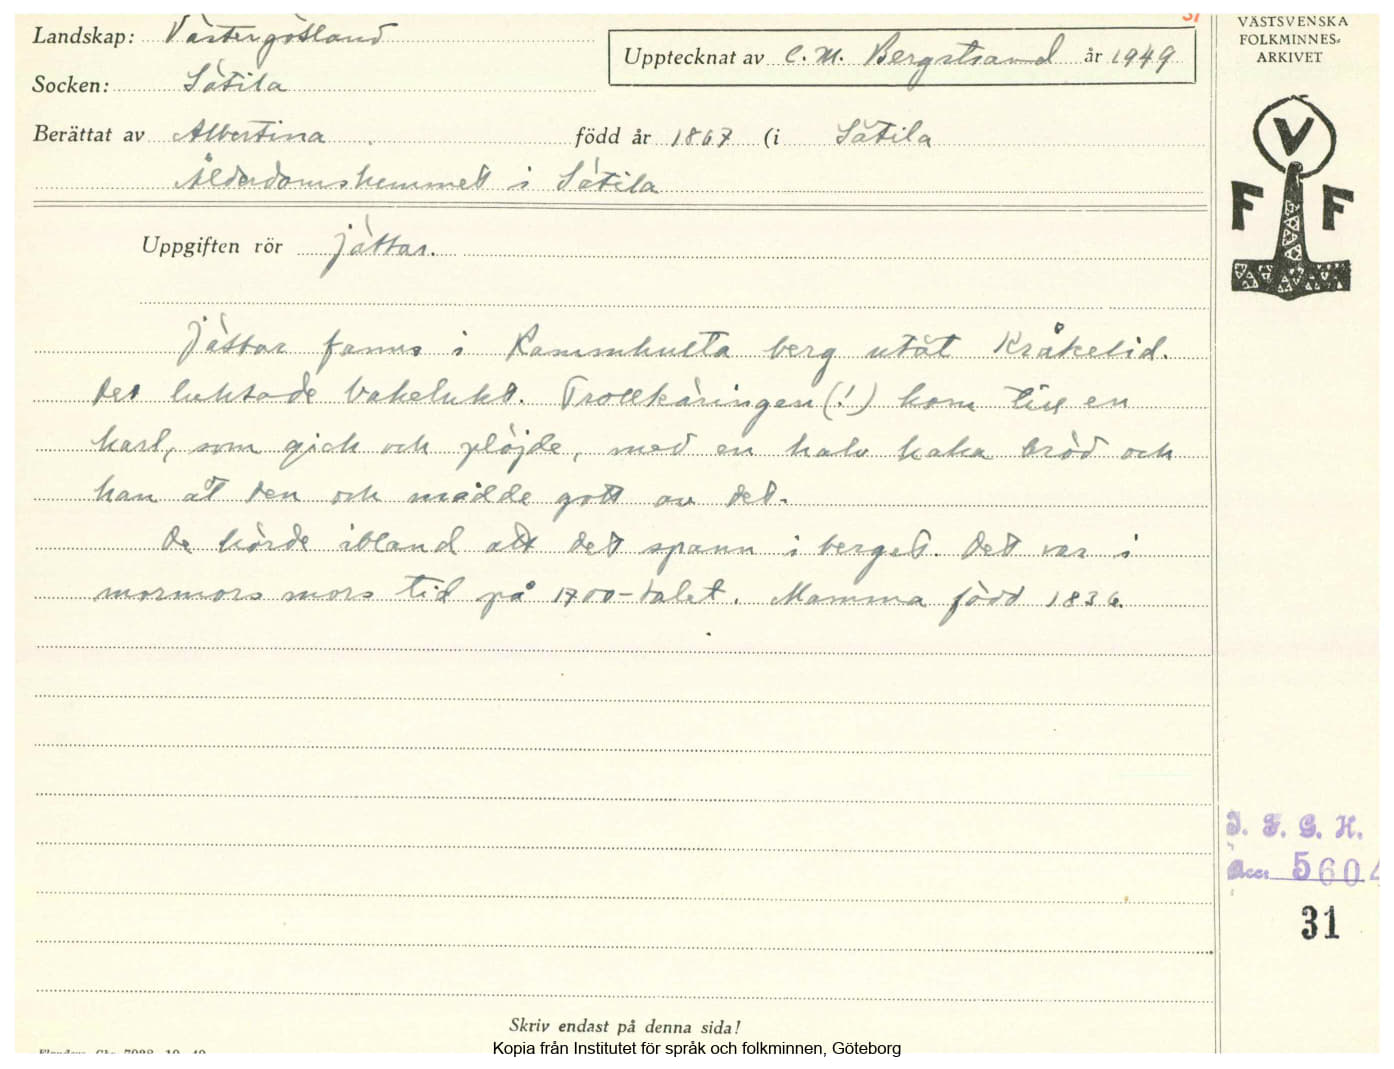 31
Landskap: Västergötland
Upptecknat av C. M. Bergstrand år 1949
VÄSTSVENSKA
FOLKMINNES-
ARKIVET
Socken: Sätila
Berättat av Albertina född år 1867 (i Sätila
Ålderdomshemmet i Sätila
V
F F
Uppgiften rör Jättar.
Jättar fanns i Rammhulta berg utåt Kråkelid.
Det luktade bakelukt. Trollkäringen (!) kom till en
karl, som gick och plöjde, med en halv kaka bröd och
han åt den och mådde gott av det.
De hörde ibland att det spann i berget. Det var i
mormors mors tid på 1700-talet. Mamma född 1836.
I. F. G. H.
Acc: 5604
31
Skriv endast på denna sida!
Kopia från Institutet för språk och folkminnen, Göteborg